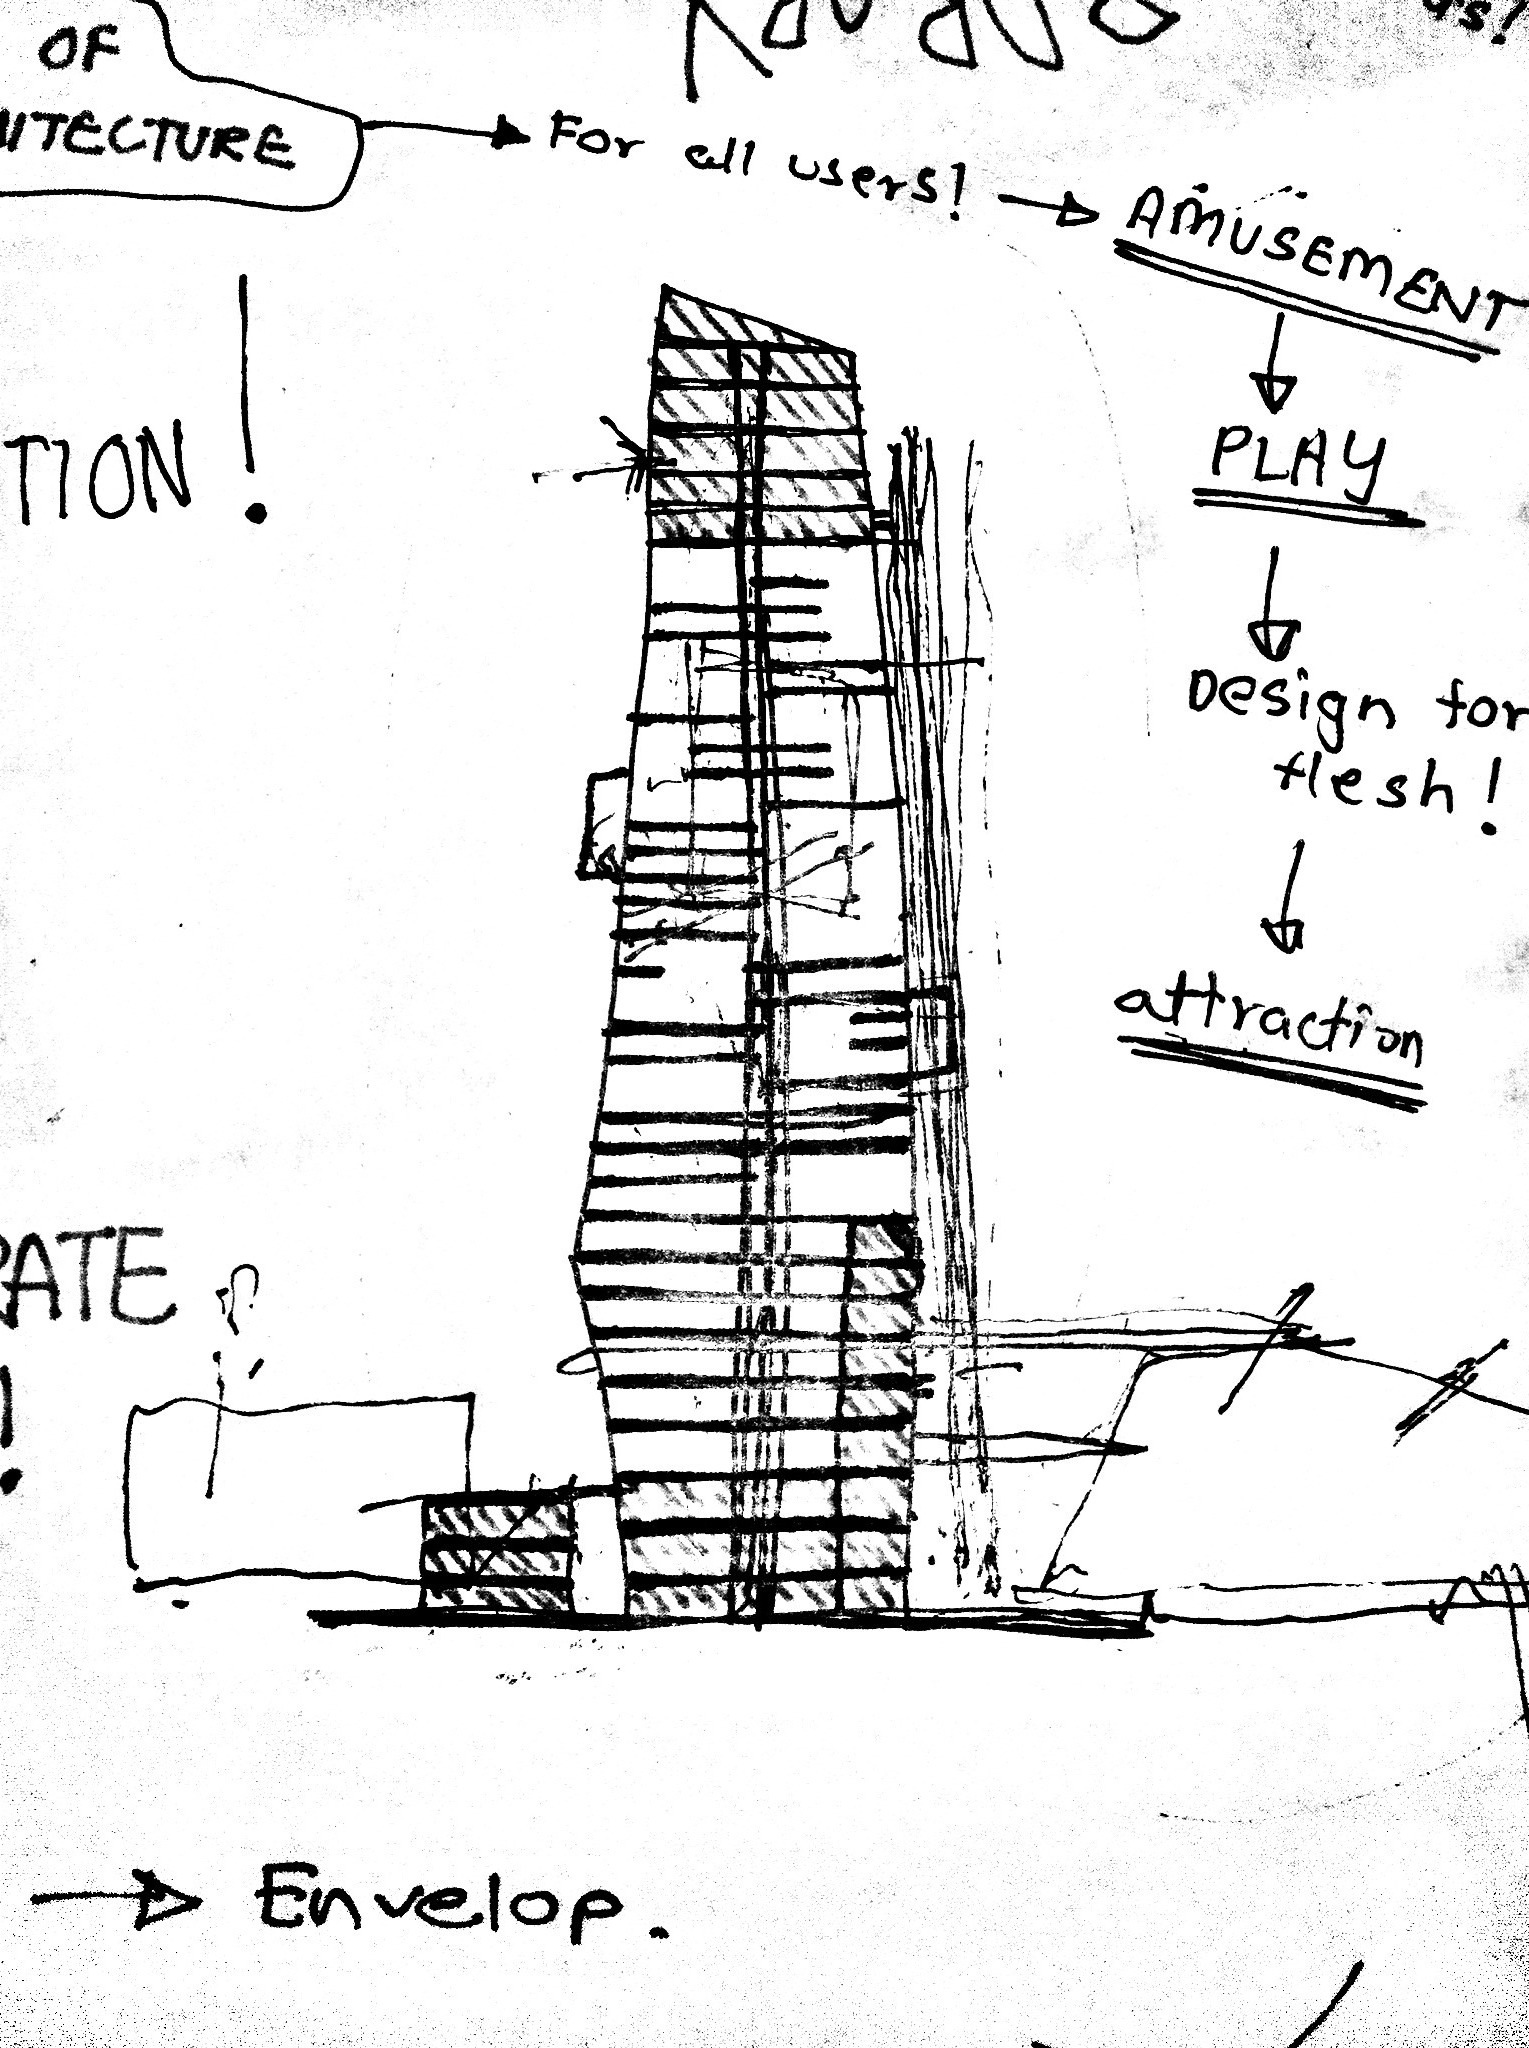 us!
OF
HITECTURE
For all users!
AMUSEMENT
PLAY
TION!
Design for
flesh!
attraction
RATE
!
Envelop.